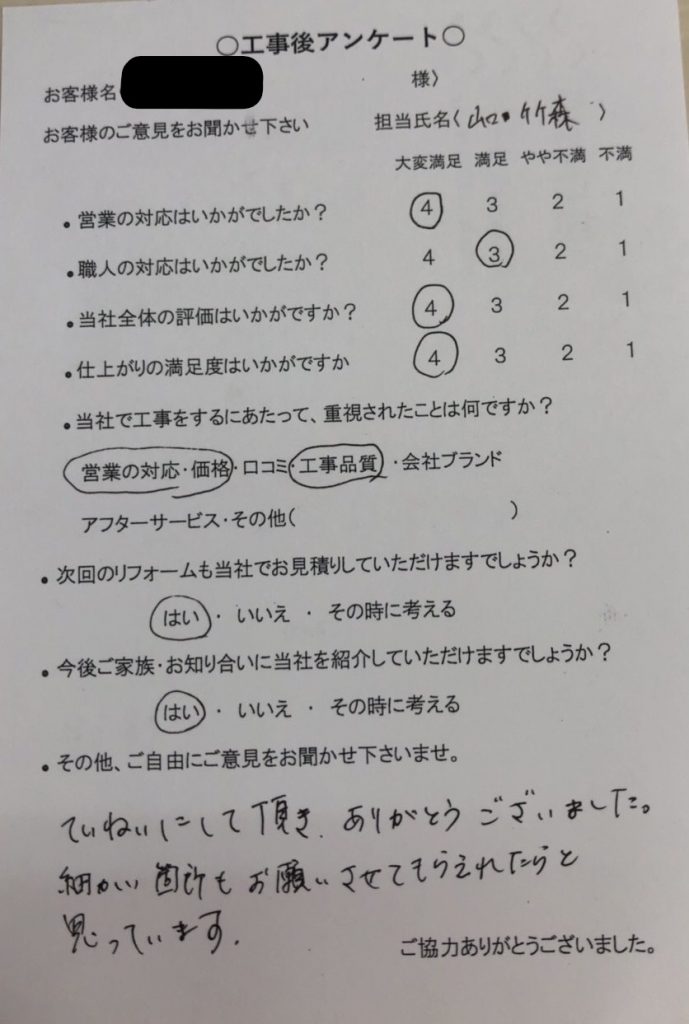 ○工事後アンケート○
お客様名 様〉
お客様のご意見をお聞かせ下さい 担当氏名〈山口・竹森 〉
大変満足 満足 やや不満 不満
・営業の対応はいかがでしたか？ 4 3 2 1
・職人の対応はいかがでしたか？ 4 3 2 1
・当社全体の評価はいかがですか？ 4 3 2 1
・仕上がりの満足度はいかがですか 4 3 2 1
・当社で工事をするにあたって、重視されたことは何ですか？
営業の対応・価格・口コミ・工事品質・会社ブランド
アフターサービス・その他( )
・次回のリフォームも当社でお見積りしていただけますでしょうか？
はい・ いいえ ・ その時に考える
・今後ご家族・お知り合いに当社を紹介していただけますでしょうか？
はい・ いいえ ・ その時に考える
・その他、ご自由にご意見をお聞かせ下さいませ。
ていねいにして頂き、ありがとうございました。
細かい箇所もお願いさせてもらえれたらと
思っています。
ご協力ありがとうございました。